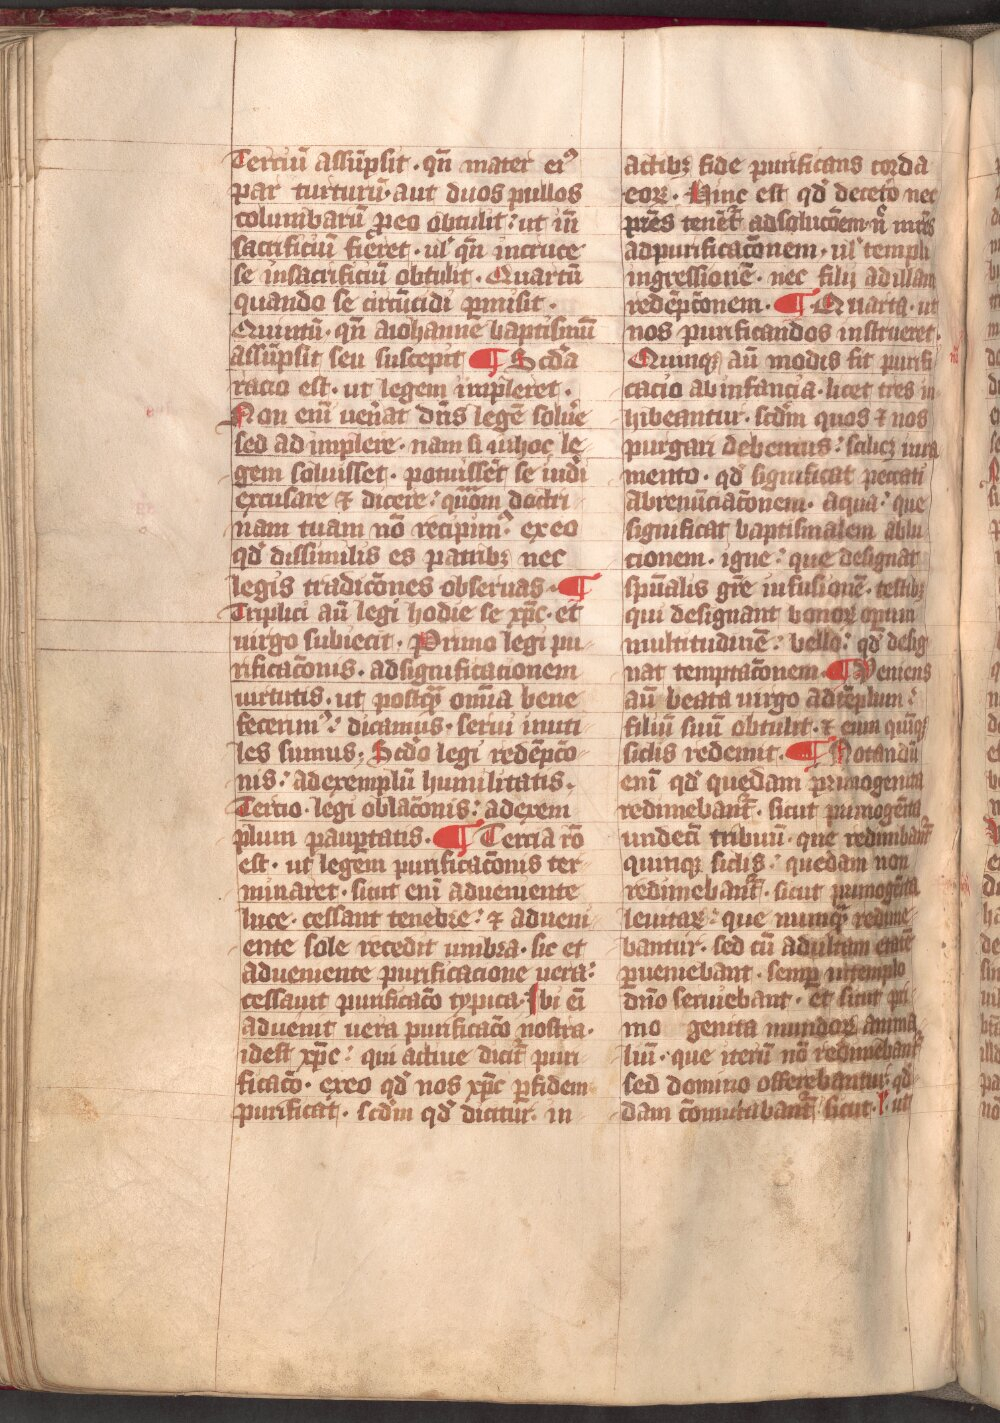 Terciū assūpsit · qn̄ mater eiꝰ
par turturū · aut duos pullos
columbarū ꝓeo obtulit : ut īn
sacrificiū fieret · ul' qn̄ incruce
se insacrificiū obtulit · Quartū
quando se circūcidi ꝑmisit ·
Quintū · qn̄ aiohanne baptismū
assūpsit seu suscepit ¶ Scd̄a
racio est · ut legem impleret ·
Non eni͞ uen̄at dn̄s legē solu͛e
sed ad implere · nam si inhoc le
gem soluisset · potuissēt se iudei
excusare ⁊ dicere : quom̄ doctri
nam tuam nō recipimꝰ · ex eo
qd̄ dissimilis es patribꝫ nec
legis tradicōnes obseruas · ¶
Triplici aū legi hodie se xp̄c · et
uirgo subiecit · Primo legi pu
rificacōnis · adsignificacionem
uirtutis · ut postqͣ om̄ia bene
fecerimꝰ : dicamus · serui inuti
les sumus · Scd̄o legi redēpcō
nis : adexemplū humilitatis ·
Tercio · legi oblacōnis : adexem
plum pauꝑtatis · ¶ Tercia rō
est · ut legem purificacōnis ter
minaret · sicut enī adueniente
luce · cessant tenebre : ⁊ adueni
ente sole recedit umbra · sic et
adueniente purificacione uera :
cessauit purificacō typica · Ibi eī
aduenit uera purificacō nostra ·
idest xp̄c : qui actiue dicit͛ puri
ficacō · exeo qd̄ nos xp̄c ꝑfidem
purificat · scd̄m qd̄ dicitur · in
actibꝫ fide purificans corda
eoꝝ · Hinc est qd̄ decet͛o nec
pr̄es tenēt͛ adsolucōem n̄ mr̄es
adpurificacōnem · ul' templi
ingressionē · nec filij adillam
redēpcōnem · ¶ Quarta · ut
nos purificandos instrueret ·
Quinqꝫ aū modis fit purifi
cacio abinfancia · licet tres in
hibeantur · scd̄m quos ⁊ nos
purgari debemus : scilicꝫ iura
mento · qd̄ significat peccati
abrenūciacōnem · aqua : que
significat baptismalem ablu
cionem · igne : que designat
spūalis gr̄e infusionē · testibꝫ
qui designant bonoꝝ operum
multitudinē : bello : qd̄ desig
nat temptacōnem · ¶ Veniens
aū beata uirgo adtēplum :
filiū suū obtulit · ⁊ eum quinqꝫ
siclis redemit · ¶ Notandū
enī qd̄ quedam primogenita
redimebant͛ · sicut primogēita
undeci͞ tribuū · que redimbāt͛
quinqꝫ siclis : quedam non
redimebant͛ · sicut primogēita
leuitaꝝ : que numqͣ redime
bantur · sed cū adultam etatē
ꝑueniebant · semꝑ intemplo
dn̄o seruiebant · et sicut pri
mo genita mundoꝝ anima
liū · que iterū nō redimebant͛
sed domino offerebantur · qd̄
dam cōmutabant͛ sicut · ut